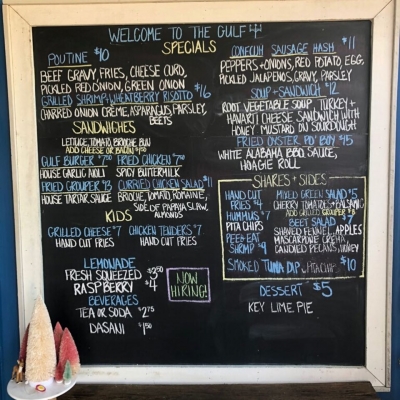 WELCOME TO THE GULF!
SPECIALS
POUTINE $10
BEEF GRAVY, FRIES, CHEESE CURD,
PICKLED RED ONION, GREEN ONION
GRILLED SHRIMP + WHEATBERRY RISOTTO $16
CHARRED ONION CRÈME, ASPARAGUS, PARSLEY,
BEETS
SANDWICHES
LETTUCE, TOMATO, BRIOCHE BUN
ADD CHEESE OR BACON
GULF BURGER $7.50
HOUSE GARLIC MOLI
FRIED CHICKEN $7.50
SPICY BUTTERMILK
FRIED GROUPER $13
HOUSE TARTAR SAUCE
CURRIED CHICKEN SALAD $11
BRIOCHE, TOMATO, ROMAINE,
SIDE OF PAPAYA SLAW,
ALMONDS
KIDS
GRILLED CHEESE $7
HAND CUT FRIES
CHICKEN TENDERS $7
HAND CUT FRIES
LEMONADE
FRESH SQUEEZED $3.50
RASPBERRY $4
BEVERAGES
TEA OR SODA $2.75
DASANI $1.50
NOW
HIRING!
CONECUH SAUSAGE HASH $11
PEPPERS + ONIONS, RED POTATO, EGG,
PICKLED JALAPEÑOS, GRAVY, PARSLEY
SOUP + SANDWICH $12
ROOT VEGETABLE SOUP, TURKEY +
HAVARTI CHEESE SANDWICH WITH
HONEY MUSTARD ON SOURDOUGH
FRIED OYSTER PO' BOY $15
WHITE ALABAMA BBQ SAUCE,
HOAGIE ROLL
SHARES + SIDES
HAND CUT
FRIES $4
HUMMUS $7
PITA CHIPS
PEEL + EAT
SHRIMP $9
MIXED GREEN SALAD $5
CHERRY TOMATO, + BALSAMIC
ADD GRILLED GROUPER $8
BEET SALAD
SHAVED FENNEL, APPLES
MASCARPONE CREMA
CANDIED PECANS, HONEY
SMOKED TUNA DIP W/ PITA CHIPS $10
DESSERT $5
KEY LIME PIE